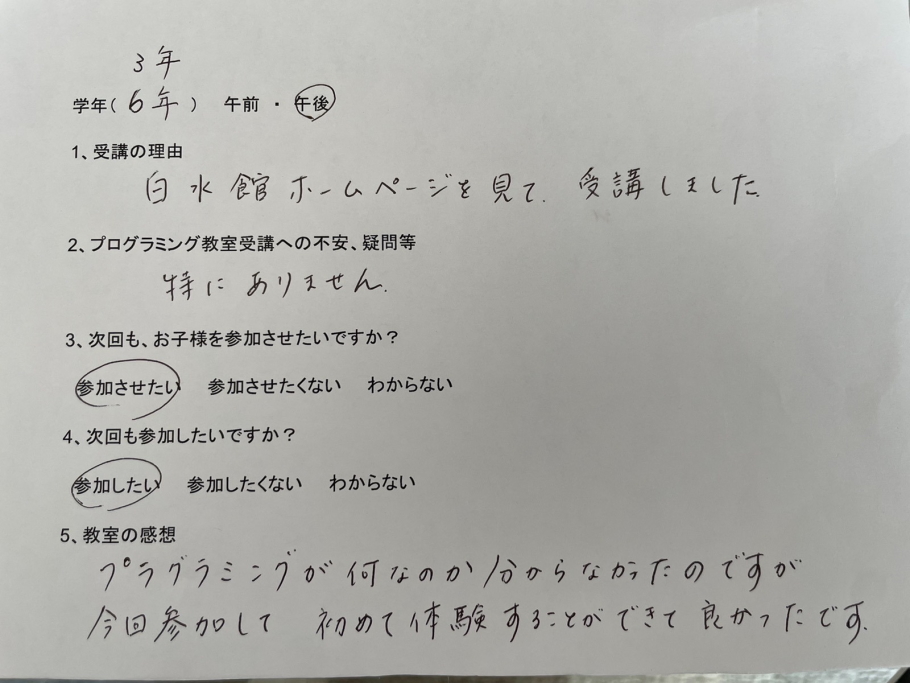 3年
学年( 6年 )　午前 ・ 午後
1、受講の理由
白水館ホームページを見て、受講しました。
2、プログラミング教室受講への不安、疑問等
特にありません。
3、次回も、お子様を参加させたいですか？
参加させたい　参加させたくない　わからない
4、次回も参加したいですか？
参加したい　参加したくない　わからない
5、教室の感想
プラグラミングが何なのか分からなかったのですが
今回参加して 初めて体験することができて良かったです。